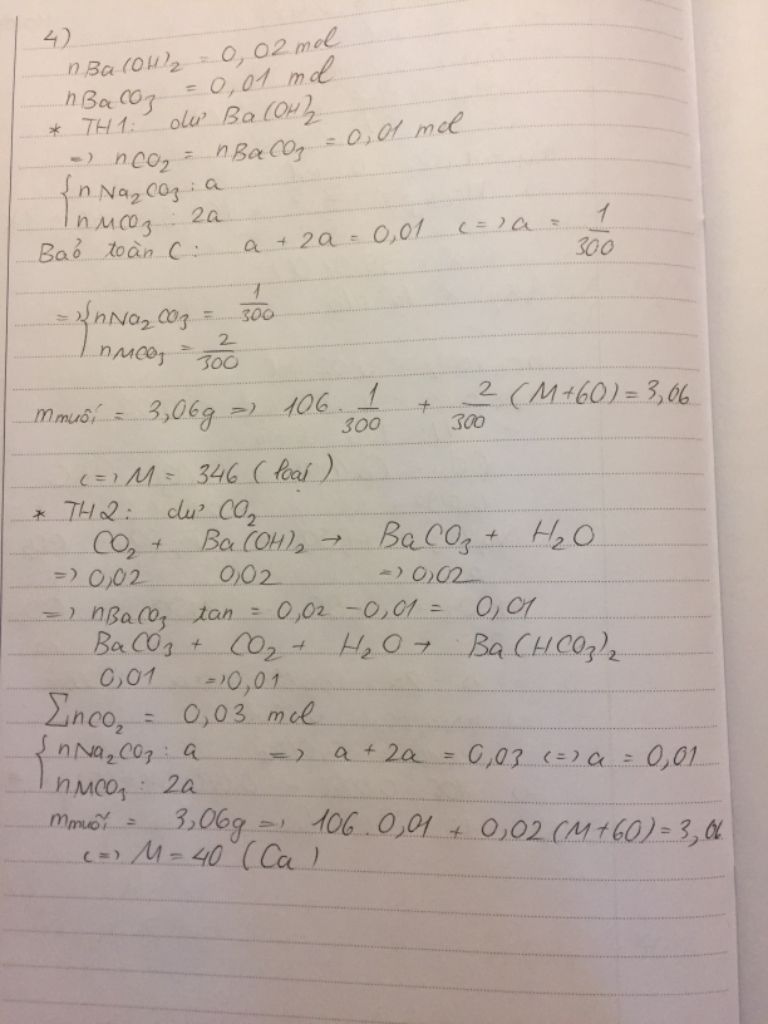 4)
nBa(OH)₂ = 0,02 mol
nBaCO₃ = 0,01 mol
* TH1: dư Ba(OH)₂
=> nCO₂ = nBaCO₃ = 0,01 mol
{ nNa₂CO₃ : a
nMCO₃ : 2a
Baỏ toàn C: a + 2a = 0,01 <=> a = 1/300
=> { nNa₂CO₃ = 1/300
nMCO₃ = 2/300
mmuối = 3,06g => 106 . 1/300 + 2/300 (M+60) = 3,06
<=> M = 346 (loại)
* TH2: dư CO₂
CO₂ + Ba(OH)₂ → BaCO₃ + H₂O
=> 0,02 0,02 => 0,02
=> nBaCO₃ tan = 0,02 - 0,01 = 0,01
BaCO₃ + CO₂ + H₂O → Ba(HCO₃)₂
0,01 => 0,01
∑nCO₂ = 0,03 mol
{ nNa₂CO₃ : a => a + 2a = 0,03 <=> a = 0,01
nMCO₃ : 2a
mmuối = 3,06g => 106 . 0,01 + 0,02 (M+60) = 3,06
<=> M = 40 (Ca)